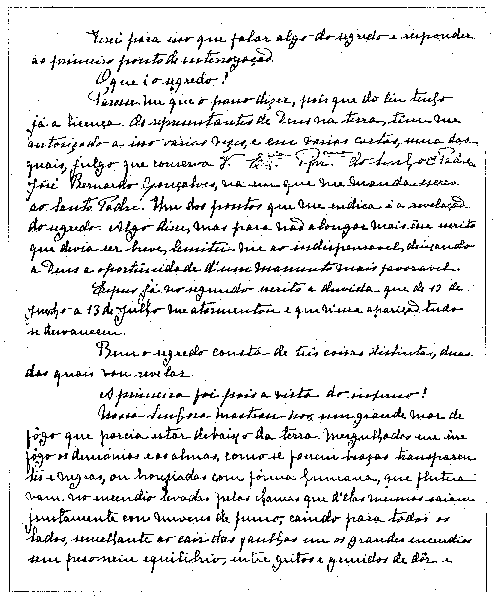 Terei para isso que falar algo do segredo e responder
ao primeiro ponto de interrogação.
O que é o segredo?
Parece-me que o posso dizer, pois que do Ceu tenho
já a licença. Os representantes de Deus na terra, têm-me
autorizado a isso várias vezes, e em várias cartas, uma das
quais, julgo que conserva V. do Senhor Padre
José Bernardo Gonçalves, na em que me manda escrever
ao Santo Padre. Um dos pontos que me indica é a revelação
do segredo. Algo disse, mas para não alongar mais êsse escrito
que devia ser breve, limitei-me ao indispensavel, deixando
a Deus a oportunidade d'um momento mais favoravel.
Expus já no segundo escrito a duvida que de 13 de
junho a 13 de julho me atormentou e que n'essa aparição tudo
se desvaneceu.
Bem o segredo consta de três coisas distintas, duas
das quais vou revelar.
A primeira foi pois a vista do inferno!
Nossa Senhora mostrou-nos um grande mar de
fôgo que parcia estar debaixo da terra. Mergulhados em êsse
fôgo os demónios e as almas, como se fossem brasas transparen-
tes e negras, ou bronziadas com fórma humana, que flutua-
vam no incendio levadas pelas chamas que d'elas mesmas saiam
juntamente com nuvens de fumo, caindo para todos os
lados, semelhante ao cair das faulhas em os grandes incendios
sem peso nem equilibrio, entre gritos e gemidos de dôr e